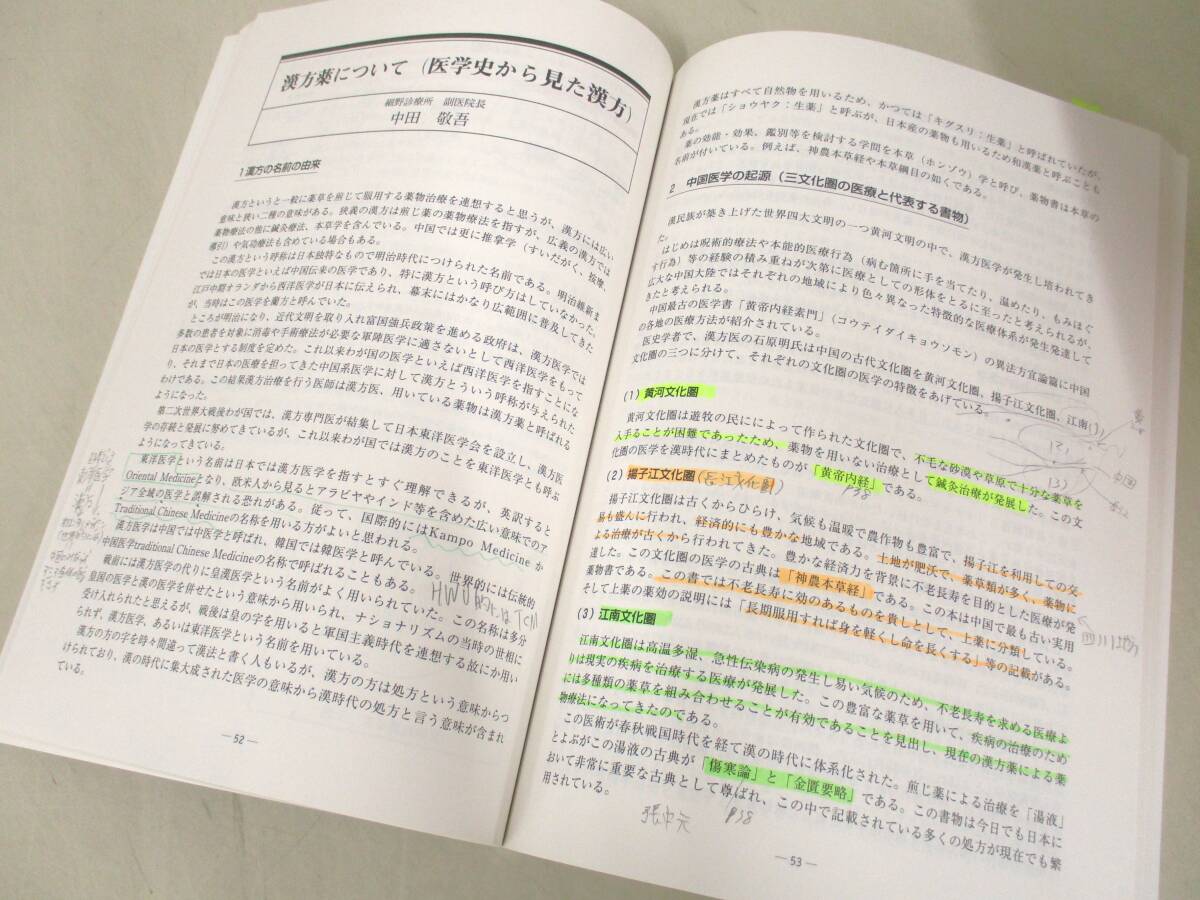 漢方薬について（医学史から見た漢方）
細野診療所 副医院長
中田 敬吾
1 漢方の名前の由来
漢方というと一般に薬草を煎じて服用する薬物治療を連想すると思うが、漢方には広い
意味と狭い二種の意味がある。狭義の漢方は煎じ薬の薬物療法を指すが、広義の漢方では
薬物療法の他に鍼灸療法、本草学を含んでいる。中国では更に推拿学（すいだがく、按摩、
導引）や気功療法も含めている場合もある。
この漢方という呼称は日本独特なもので明治時代につけられた名前である。明治維新ま
では日本の医学といえば中国伝来の医学であり、特に漢方という呼び方はしていなかった。
江戸中期オランダから西洋医学が日本に伝えられ、幕末にはかなり広範囲に普及してきた
が、当時はこの医学を蘭方と呼んでいた。
ところが明治になり、近代文明を取り入れ富国強兵政策を進める政府は、漢方医学では
多数の患者を対象に消毒や手術療法が必要な軍陣医学に適さないとして西洋医学をもって
日本の医学とする制度を定めた。これ以来わが国の医学といえば西洋医学を指すことにな
り、それまで日本の医療を担ってきた中国系医学に対して漢方とういう呼称が与えられた
わけである。この結果漢方治療を行う医師は漢方医、用いている薬物は漢方薬と呼ばれる
ようになった。
第二次世界大戦後わが国では、漢方専門医が結集して日本東洋医学会を設立し、漢方医
学の存続と発展に努めてきているが、これ以来わが国では漢方のことを東洋医学とも呼ぶ
ようになってきている。
東洋医学という名前は日本では漢方医学を指すとすぐ理解できるが、英訳すると
Oriental Medicineとなり、欧米人から見るとアラビヤやインド等を含めた広い意味でのア
ジア全域の医学と誤解される恐れがある。従って、国際的にはKampo Medicine か
Traditional Chinese Medicineの名称を用いる方がよいと思われる。
漢方医学は中国では中医学と呼ばれ、韓国では韓医学と呼んでいる。世界的には伝統的
中国医学traditional Chinese Medicineの名称で呼ばれることもある。
戦前には漢方医学の代りに皇漢医学という名前がよく用いられていた。この名称は多分
皇国の医学と漢の医学を併せたという意味から用いられ、ナショナリズムの当時の世相に
受け入れられたと思えるが、戦後は皇の字を用いると軍国主義時代を連想する故にか用い
られず、漢方医学、あるいは東洋医学という名前を用いている。
漢方の方の字を時々間違って漢法と書く人もいるが、漢方の方は処方という意味からつ
けられており、漢の時代に集大成された医学の意味から漢時代の処方と言う意味が含まれ
ている。
—52—
漢方薬はすべて自然物を用いるため、かつては「キグスリ：生薬」と呼ばれていたが、
現在では「ショウヤク：生薬」と呼ぶが、日本産の薬物も用いるため和漢薬と呼ぶことも
ある。
薬の効能・効果、鑑別等を検討する学問を本草（ホンゾウ）学と呼び、薬物書は本草の
名前が付いている。例えば、神農本草経や本草綱目の如くである。
2 中国医学の起源（三文化圏の医療と代表する書物）
漢民族が築き上げた世界四大文明の一つ黄河文明の中で、漢方医学が発生し培われてき
た。
はじめは呪術的療法や本能的医療行為（病む箇所に手を当てたり、温めたり、もみほぐ
す行為）等の経験の積み重ねが次第に医療としての形体をとるに至ったと考えられるが、
広大な中国大陸ではそれぞれの地域により色々異なった特徴的な医療体系が発生発達して
きたと考えられる。
中国最古の医学書「黄帝内経素門」（コウテイダイキョウソモン）の異法方宜論篇に中国
の各地の医療方法が紹介されている。
医史学者で、漢方医の石原明氏は中国の古代文化圏を黄河文化圏、揚子江文化圏、江南
文化圏の三つに分けて、それぞれの文化圏の医学の特徴をあげている。
(1) 黄河文化圏
黄河文化圏は遊牧の民にによって作られた文化圏で、不毛な砂漠や草原で十分な薬草を
入手ることが困難であったため、薬物を用いない治療として鍼灸治療が発展した。この文
化圏の医学を漢時代にまとめたものが「黄帝内経」である。
P38
(2) 揚子江文化圏（長江文化圏）
揚子江文化圏は古くからひらけ、気候も温暖で農作物も豊富で、揚子江を利用しての交
易も盛んに行われ、経済的にも豊かな地域である。土地が肥沃で、薬草類が多く、薬物に
よる治療が古くから行われてきた。豊かな経済力を背景に不老長寿を目的とした医療が発
達した。この文化圏の医学の古典は「神農本草経」である。この本は中国で最も古い実用
薬物書である。この書では不老長寿に効のあるものを貴しとして、上薬に分類している。
そして上薬の薬効の説明には「長期服用すれば身を軽くし命を長くする」等の記載がある。
(3) 江南文化圏
江南文化圏は高温多湿、急性伝染病の発生し易い気候のため、不老長寿を求める医療よ
りは現実の疾病を治療する医療が発展した。この豊富な薬草を用いて、疾病の治療のため
には多種類の薬草を組み合わせることが有効であることを見出し、現在の漢方薬による薬
物療法になってきたのである。
この医術が春秋戦国時代を経て漢の時代に体系化された。煎じ薬による治療を「湯液」
とよぶがこの湯液の古典が「傷寒論」と「金匱要略」である。この書物は今日でも日本に
おいて非常に重要な古典として尊ばれ、この中で記載されている多くの処方が現在でも繁
用されている。
P38
—53—